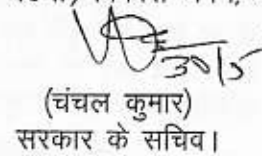 30/5
(चंचल कुमार)
सरकार के सचिव।